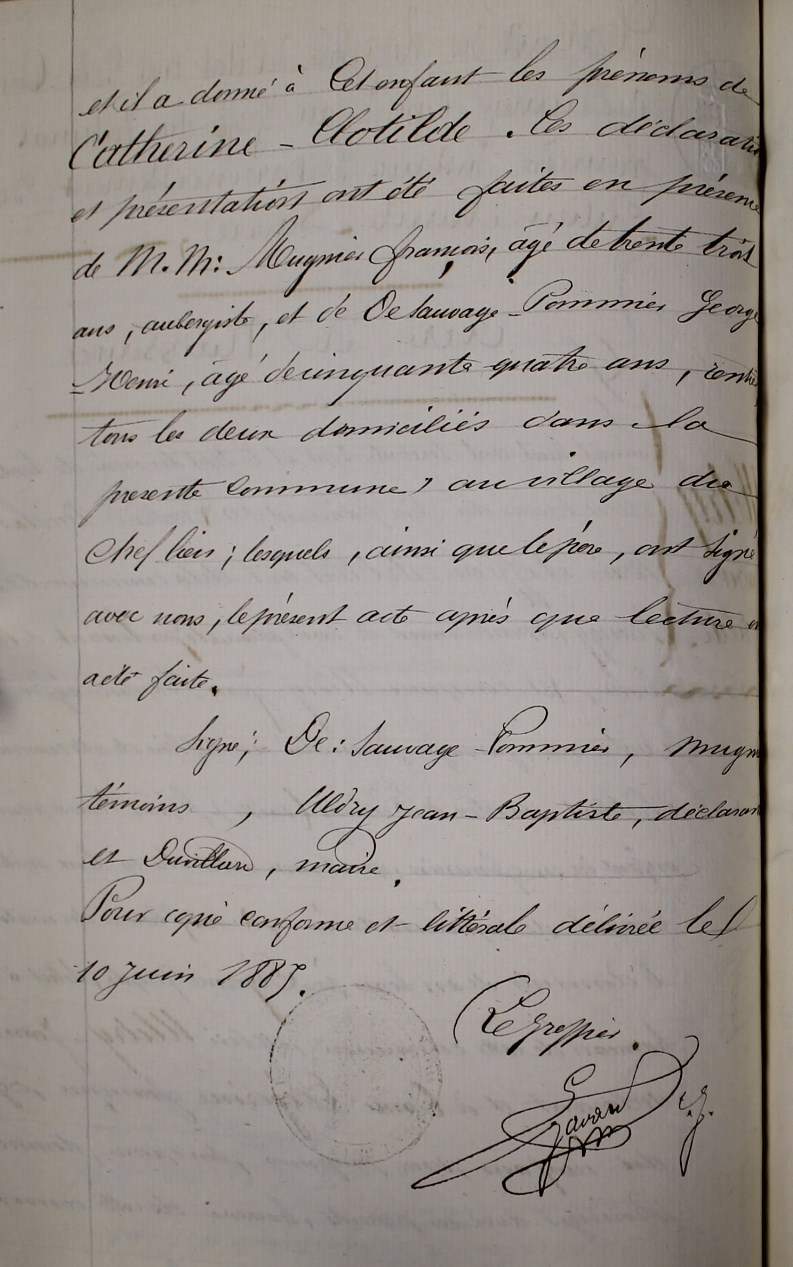 et il a donné à Cet enfant les prénoms de
Catherine - Clotilde. Les déclaration
et présentation ont été faites en présence
de M.M: Mugnier françois, âgé de trente trois
ans, aubergiste, et de De Sauvage-Pommier George
Henri, âgé de cinquante quatre ans, rentier
tous les deux domiciliés dans la
présente Commune, au village du
Chef lieu; lesquels, ainsi que le père, ont signé
avec nous, le présent acte après que lecture en
a été faite.
Signé; De: Sauvage Pommier, Mugnier
témoins, Uldry Jean-Baptiste, déclarant
et Duvillard, maire.
Pour copie conforme et littérale délivrée le
10 Juin 1885.
Le Greffier.